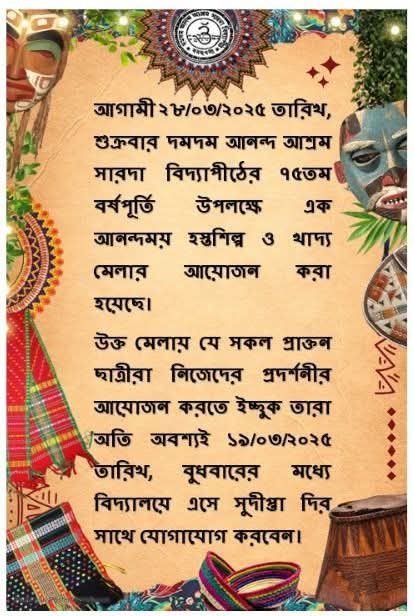 আগামী ২৮/০৩/২০২৫ তারিখ,
শুক্রবার দমদম আনন্দ আশ্রম
সারদা বিদ্যাপীঠের ৭৫তম
বর্ষপূর্তি উপলক্ষে এক
আনন্দময় হস্তশিল্প ও খাদ্য
মেলার আয়োজন করা
হয়েছে।
উক্ত মেলায় যে সকল প্রাক্তন
ছাত্রীরা নিজেদের প্রদর্শনীর
আয়োজন করতে ইচ্ছুক তারা
অতি অবশ্যই ১৯/০৩/২০২৫
তারিখ, বুধবারের মধ্যে
বিদ্যালয়ে এসে সুদীপ্তা দির
সাথে যোগাযোগ করবেন।